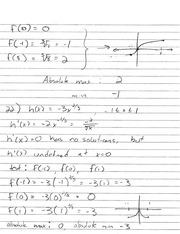 f(0) = 0
f(-1) = ∛-1 = -1
f(8) = ∛8 = 2
Absolute max: 2
min -1
22) h(x) = -3x^(2/3) -1 ≤ x ≤ 1
h'(x) = -2x^(-1/3) = -2/∛x
h'(x)=0 has no solutions, but
h'(x) undefined at x=0
test: f(-1), f(0), f(1)
f(-1) = -3(-1)^(2/3) = -3(1) = -3
f(0) = -3(0)^(2/3) = 0
f(1) = -3(1)^(2/3) = -3
absolute max: 0 absolute min -3